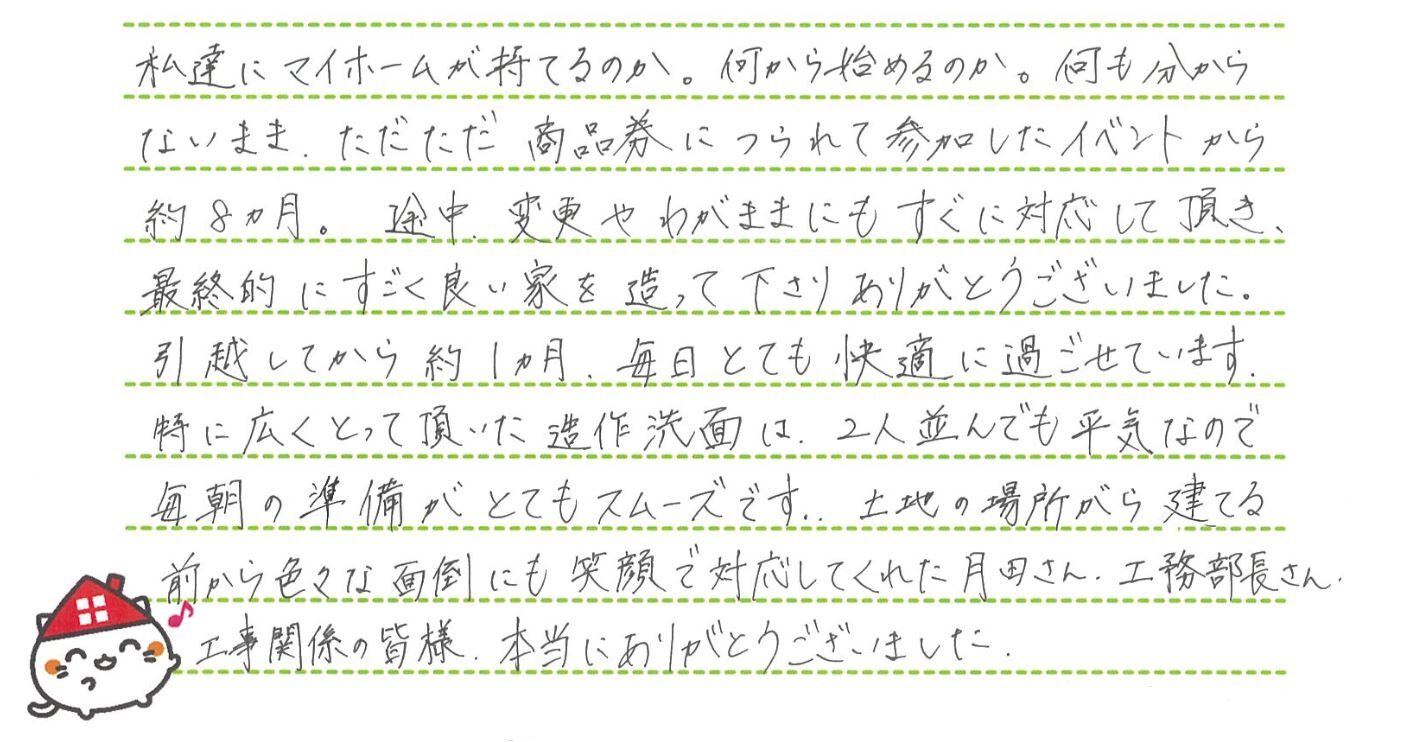 私達にマイホームが持てるのか。何から始めるのか。何も分から
ないまま、ただただ商品券につられて参加したイベントから
約8ヵ月。途中、変更やわがままにもすぐに対応して頂き、
最終的にすごく良い家を造って下さりありがとうございました。
引越してから約1ヵ月、毎日とても快適に過ごせています。
特に広くとって頂いた造作洗面は、2人並んでも平気なので
毎朝の準備がとてもスムーズです。土地の場所がら建てる
前から色々な面倒にも笑顔で対応してくれた月田さん、工務部長さん、
工事関係の皆様、本当にありがとうございました。